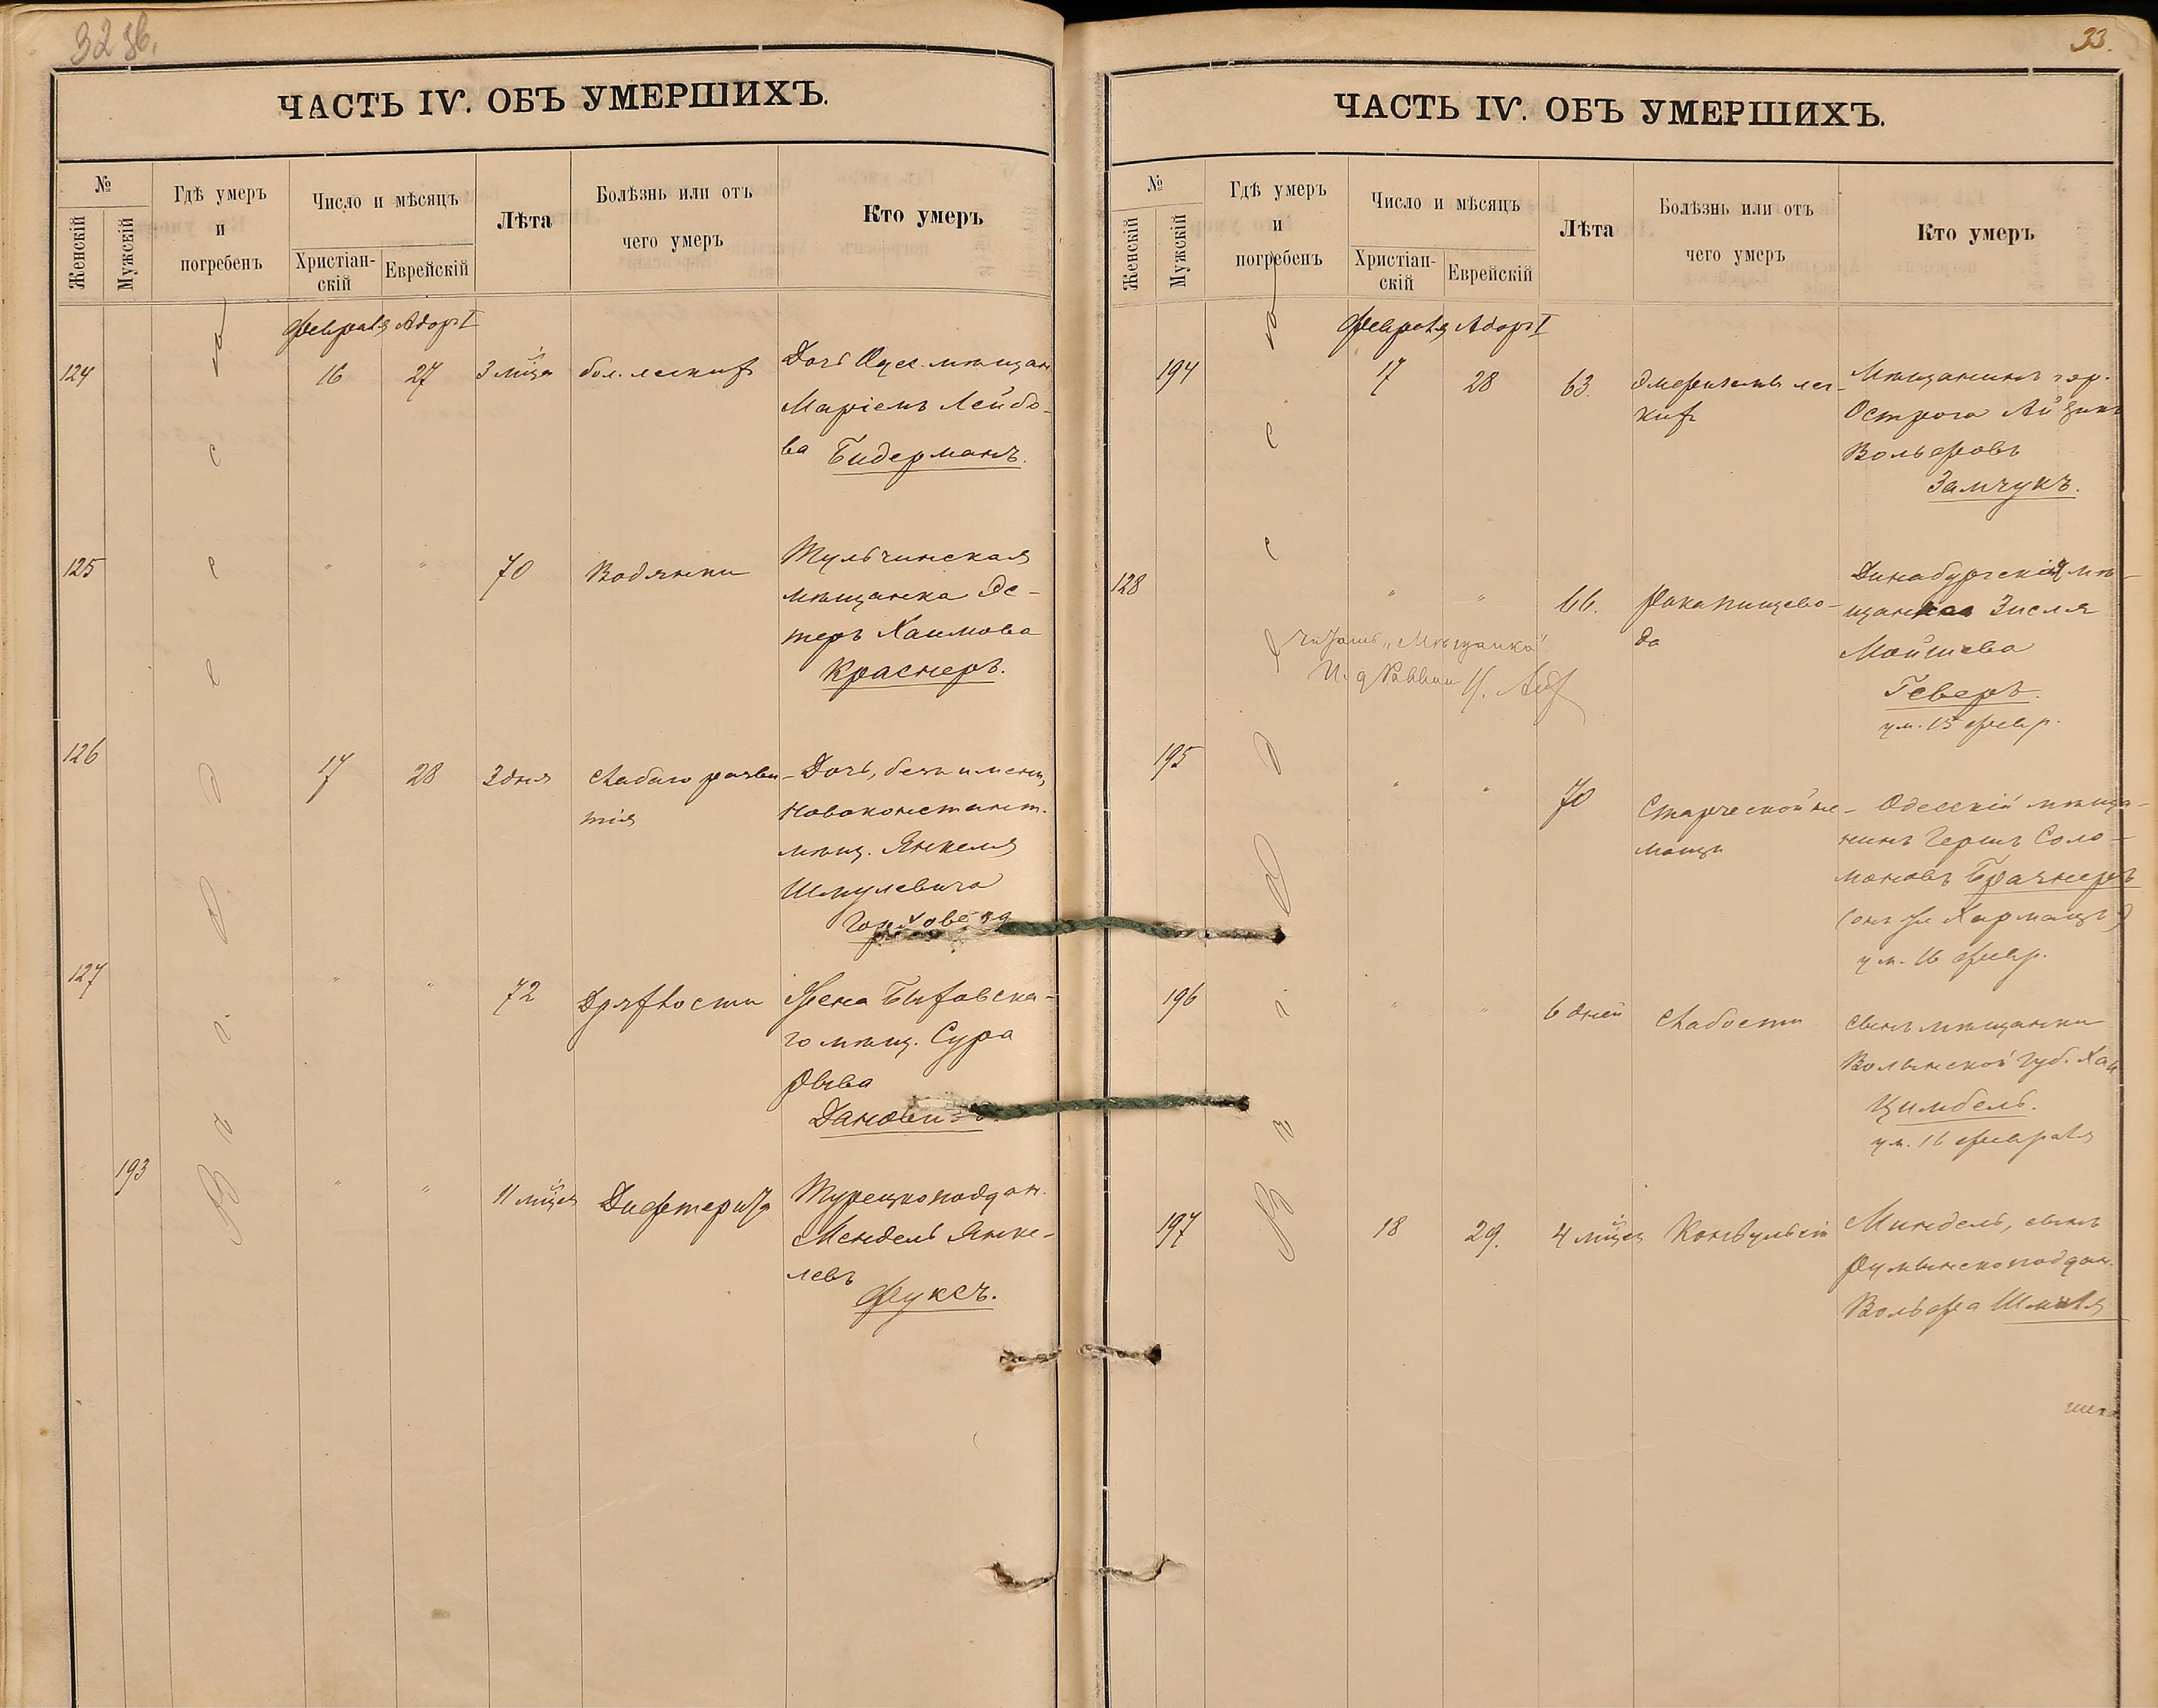 32 зб.
ЧАСТЬ IV. ОБЪ УМЕРШИХЪ.
№
Женскій
Мужскій
Гдѣ умеръ
и
погребенъ
Число и мѣсяцъ
Христіан-
скій
Еврейскій
Лѣта
Болѣзнь или отъ
чего умеръ
Кто умеръ
Февраля Адоръ I
124 16 27 3 мѣс. бол. легкихъ Дочь Одес. мѣщан.
Маріемъ Лейбо-
ва Бидерманъ.
125 " " 70 Водянки Тульчинская
мѣщанка Эс-
теръ Хаимова
Краснеръ.
126 17 28 3 дня Слабаго разви-
тія
Дочь, безъ имени,
Новоконстант.
мѣщ. Янкеля
Шмулевича
127 " " 72 Дряхлости Жена
го мѣщ. Сура
193 " " 11 мѣсяц Дифтерита Турецкоподдан.
Мендель Янке-
левъ
Фуксъ.
Въ Одессѣ
33.
ЧАСТЬ IV. ОБЪ УМЕРШИХЪ.
№
Женскій
Мужскій
Гдѣ умеръ
и
погребенъ
Число и мѣсяцъ
Христіан-
скій
Еврейскій
Лѣта
Болѣзнь или отъ
чего умеръ
Кто умеръ
Февраля Адоръ I
194 17 28 63. Эмфиземы лег-
кихъ
Мѣщанинъ гор.
Острога Айзикъ
Вольфовъ
Замчукъ.
128 " " 66. Рака пищево-
да
Динабургская мѣ-
щанка Зисля
Мойшева
Геверъ.
ум. 15 февр.
читать "Мѣщанка"
И. д. Раввина
195 " " 70 Старческой не-
мощи
Одесскій мѣща-
нинъ Гершъ Соло-
моновъ
(онъ же Хармацъ)
ум. 16 февр.
196 " " 6 дней Слабости Сынъ мѣщанки
Волынской губ.
Цимбель.
ум. 16 февраля
197 18 29. 4 мѣсяц Конвульсій Миндель, сынъ
Румынскоподдан.
Вольфа